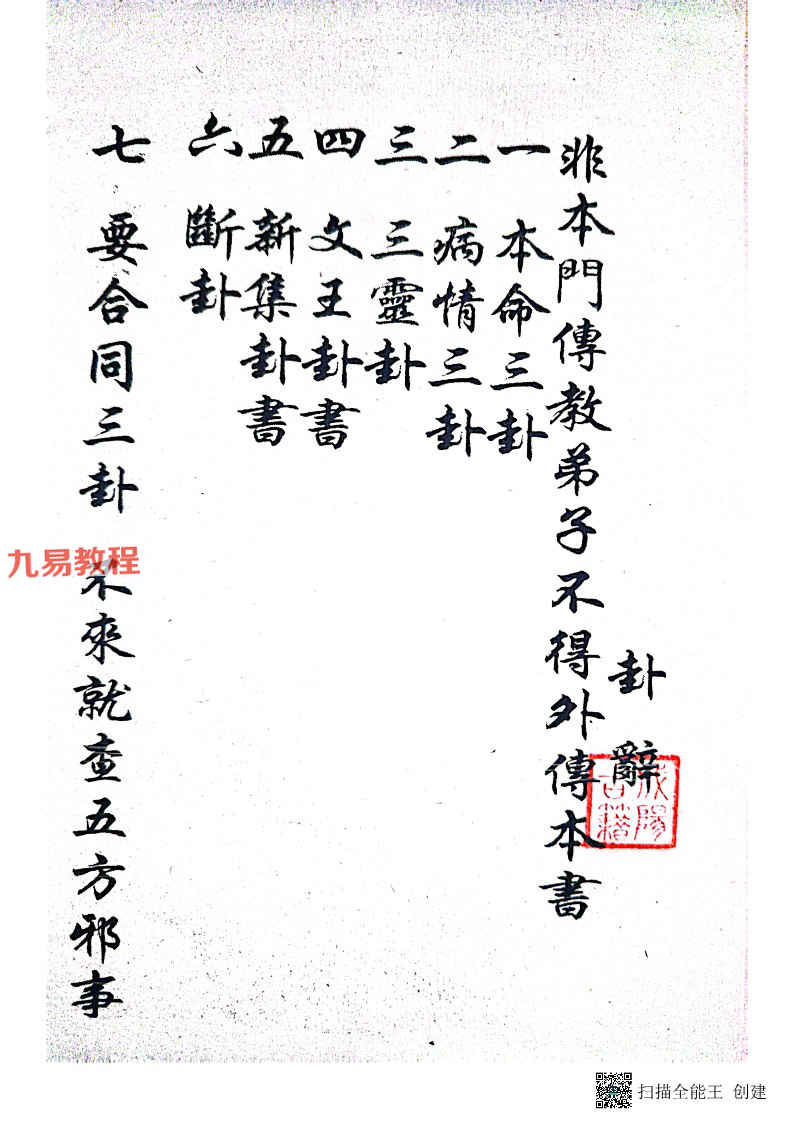 卦辭
非本門傳教弟子不得外傳本書
一 本命三卦
二 病情三卦
三 三靈卦
四 文王卦書
五 新集卦書
六 斷卦
七 要合同三卦 不來就查五方邪事
九易教程
古籍
陽
扫描全能王 创建